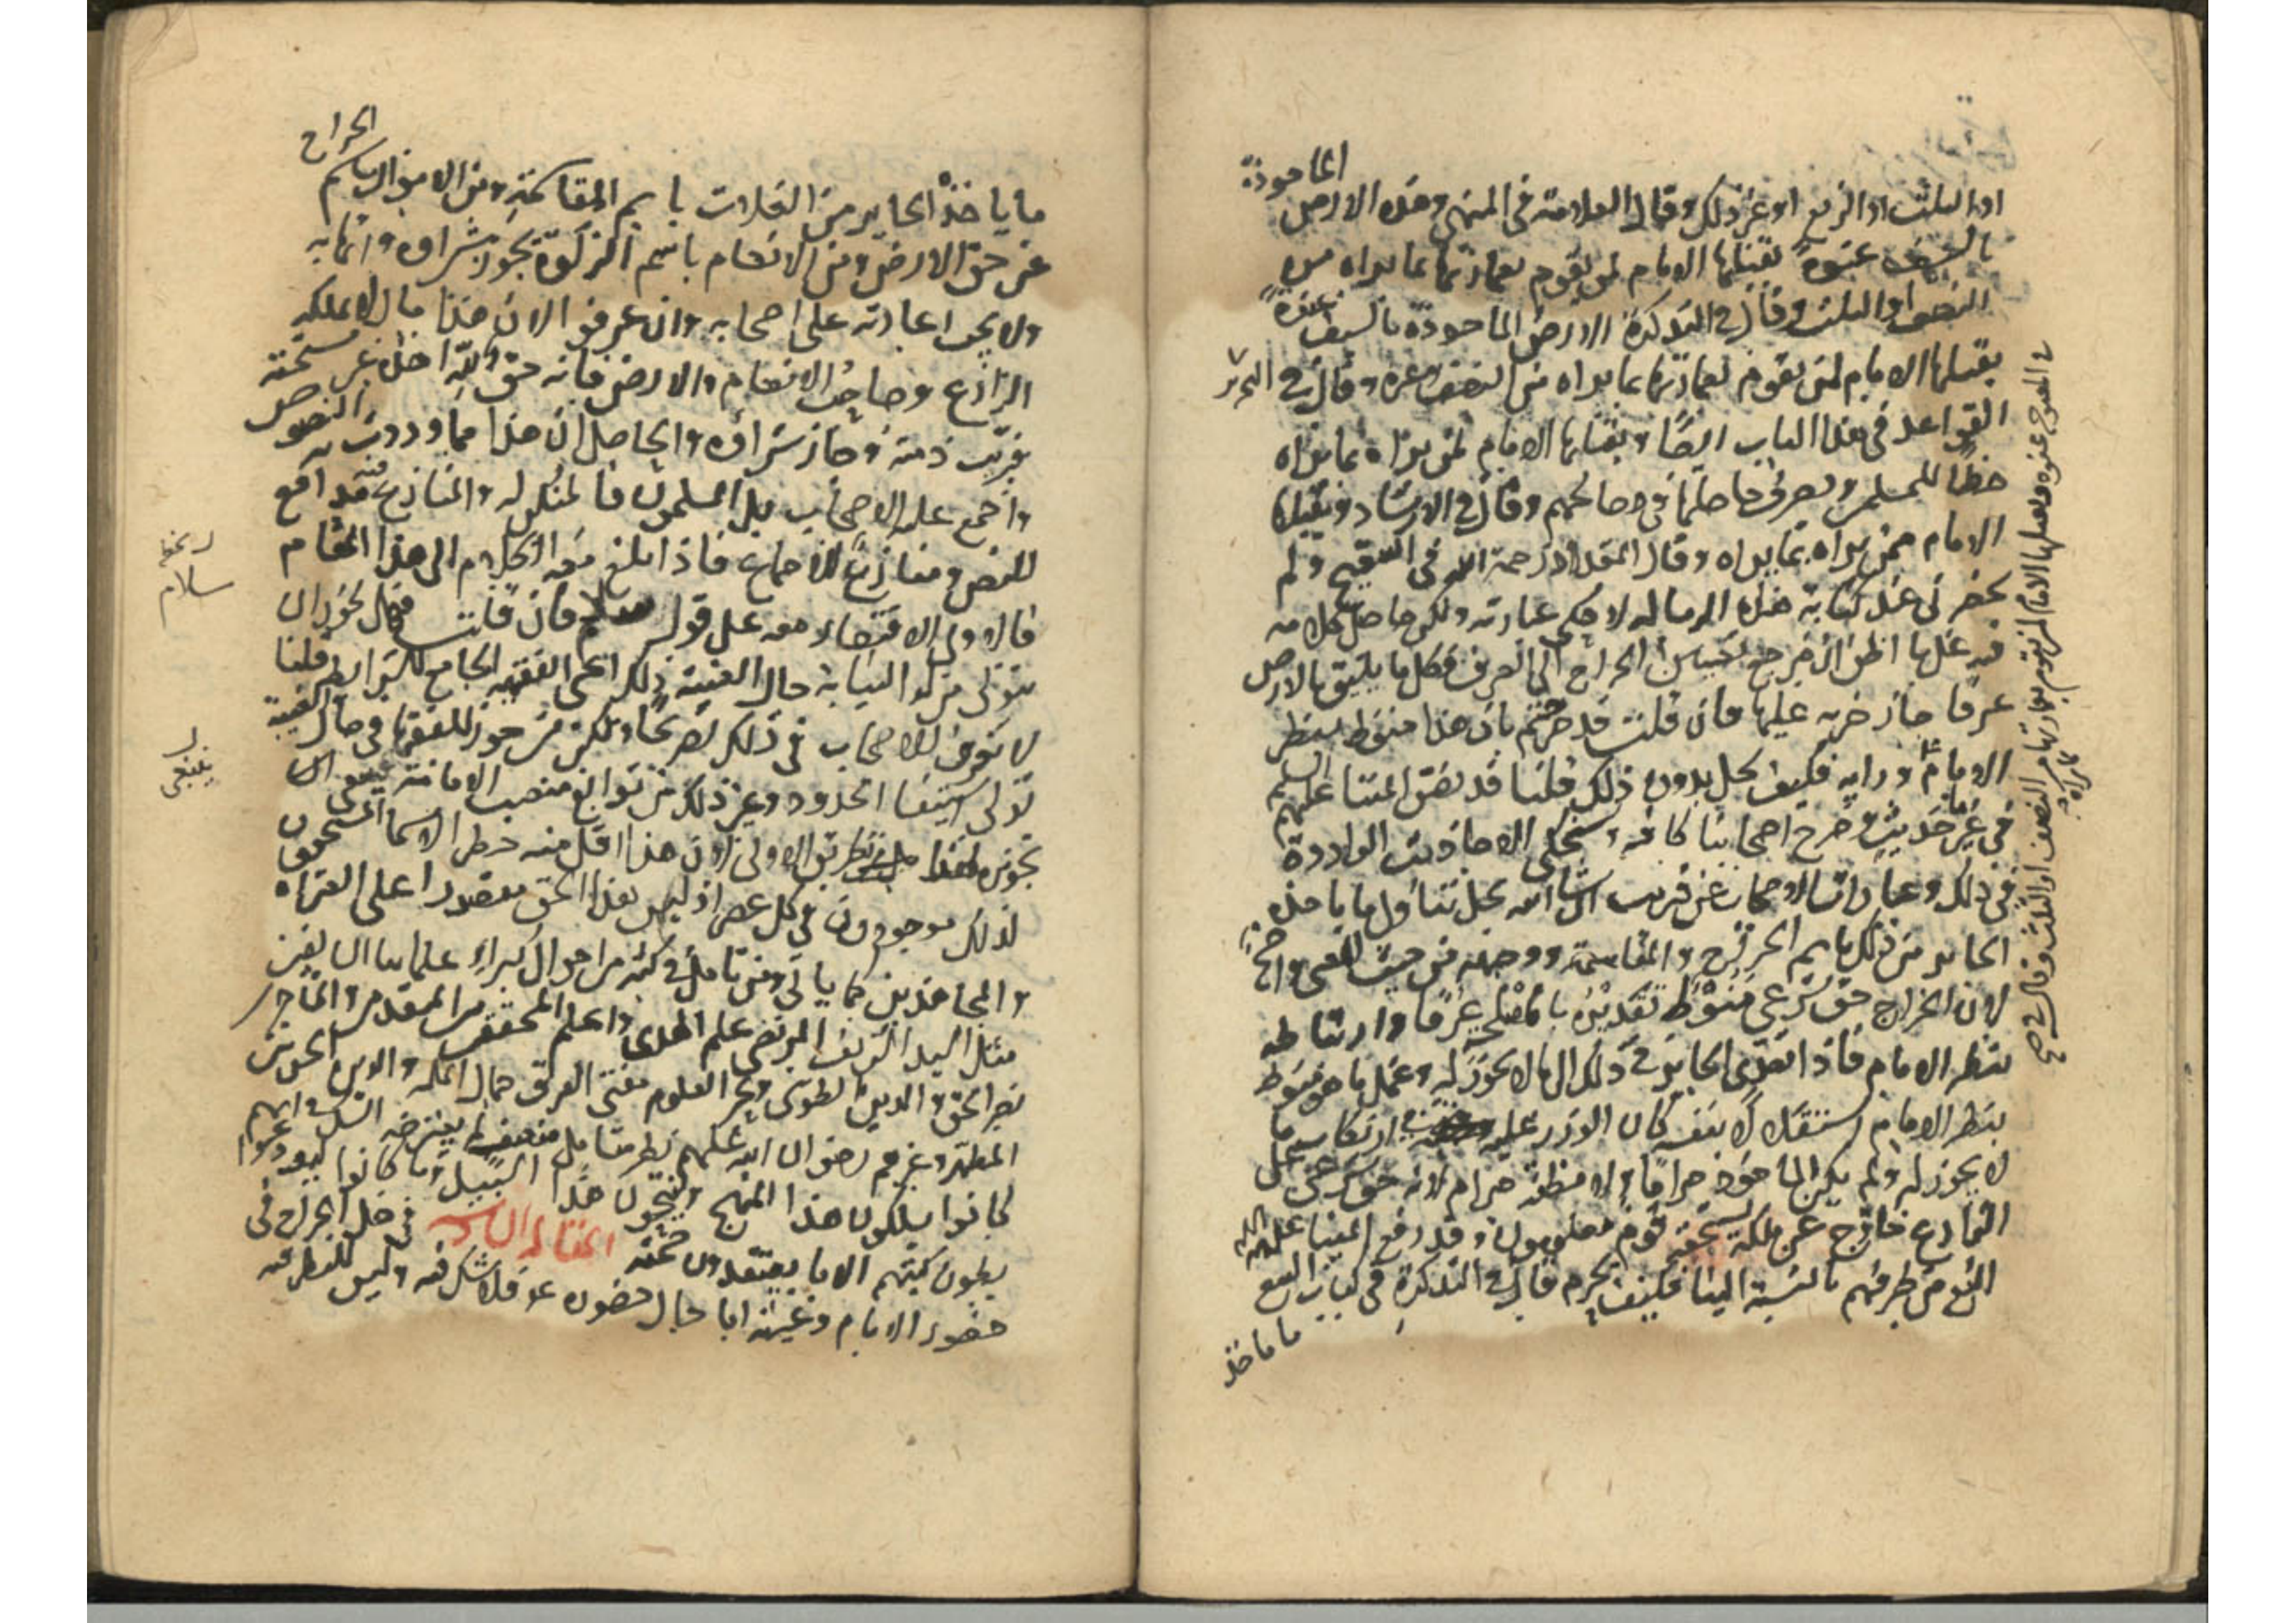 او الثلث او الربع او غير ذلك وقال العلامة في المنتهى وهذه الارض الماخوذة
بالسيف عنوة يقبلها الامام لمن يقوم بعمارتها بما يراه من
النصف او الثلث وقال في التذكرة الارض الماخوذة بالسيف عنوة
يقبلها الامام لمن يقوم بعمارتها بما يراه من النصف وغيره وقال في التحرير
القواعد في هذا الباب ايضا ويقبلها الامام لمن يراه بما يراه
حظا للمسلمين ويصرف حاصلها في مصالحهم وقال في الارشاد ويقبلها
الامام ممن يراه بما يراه وقال المقداد رحمة الله في التنقيح ولم
يحضرني عند كتابة هذه الرسالة لاحكي عبارته ولكن حاصل كلامه
فيه على ما اظن ان مرجع تعيين الخراج الى العرف فكل ما يليق بالارض
عرفا جاز ضربه عليها فان قلت قد صرحتم بان هذا منوط بنظر
الامام ورايه فكيف يحل بدون ذلك قلنا قد نص ائمتنا عليهم السلم
في غير ما حديث وصرح اصحابنا كافة وسنحكي الاحاديث الواردة
في ذلك وعبارات الاصحاب عن قريب ان شا الله بحل تناول ما ياخذه
الجاير من ذلك باسم الخراج والمقاسمة ووجهه من حيث المعنى واضح
لان الخراج حق شرعي منوط تقديره بالمصلحة عرفا وارتباطه
بنظر الامام فاذا تعدى الجاير في ذلك الى ما لا يجوز له وعمل ما هو منوط
بنظر الامام استقلالا بنفسه كان الوزر عليه في ارتكاب ما
لا يجوز له ولم يكن الماخوذ حراما ولا مظنة حرام لانه حق شرعي على
الزارع خارج عن ملكه يستحقه قوم معلومون وقد رفع ائمتنا عليهم السلم
المنع من طرفهم بالنسبة الينا فكيف يحرم قال في التذكرة في كتاب البيع
ما ياخذ
في المفتوح عنوة ويقبلها الامام لمن يقوم بعمارتها من النصف او الثلث وقال في
بما يراه
ما ياخذه الجاير من الغلات باسم المقاسمة ومن الاموال باسم الخراج
عن حق الارض ومن الانعام باسم الزكوة يجوز شراؤه واتهابه
ولا يجب اعادته على اصحابه وان عرفوا لان هذا مال لا يملكه
الزارع وصاحب الانعام والارض فانه حق لله اخذه غير مستحقه
فبرئت ذمته وجاز شراؤه والحاصل ان هذا مما وردت به النصوص
واجمع عليه الاصحاب بل المسلمون فالمنكر له والمنازع فيه مدافع
للنص ومنازع للاجماع فاذا بلغ معه الكلام الى هذا المقام
فالاولى الاقتصار معه على قول سلام فان قلت فهل يجوز ان
يتولى من له النيابة حال الغيبة ذلك اعني الفقيه الجامع للشرايط قلنا
لا نعرف للاصحاب في ذلك تصريحا ولكن من جوز للفقهاء في حال الغيبة
تولي استيفا الحدود وغير ذلك من توابع منصب الامامة ينبغي ان
تجويزه لهذا بطريق الاولى لان هذا اقل منه خطرا لا سيما المستحقون
لذلك موجودون في كل عصر اذ ليس هذا الحق مقصورا على الغزاة
والمجاهدين كما ياتي ومن تامل في كثير من احوال كبراء علمائنا السالفين
مثل السيد الشريف المرتضى علم الهدى واعلم المحققين من المتقدمين والمتاخرين
نصير الحق والدين الطوسي وبحر العلوم مفتي الفرق جمال الملة والدين الحسن بن
المطهر وغيرهم رضوان الله عليهم نظر متامل منصف لم يعترضه الشك في انهم
كانوا يسلكون هذا المنهج وينتهجون هذا السبيل وما كانوا ليودعوا
بطون كتبهم الا ما يعتقدون صحته المقالة الثانية في حل الخراج في
حضور الامام وغيبته اما حال حضوره ع فلا شك فيه وليس للنظر فيه
ينبغي
سلام